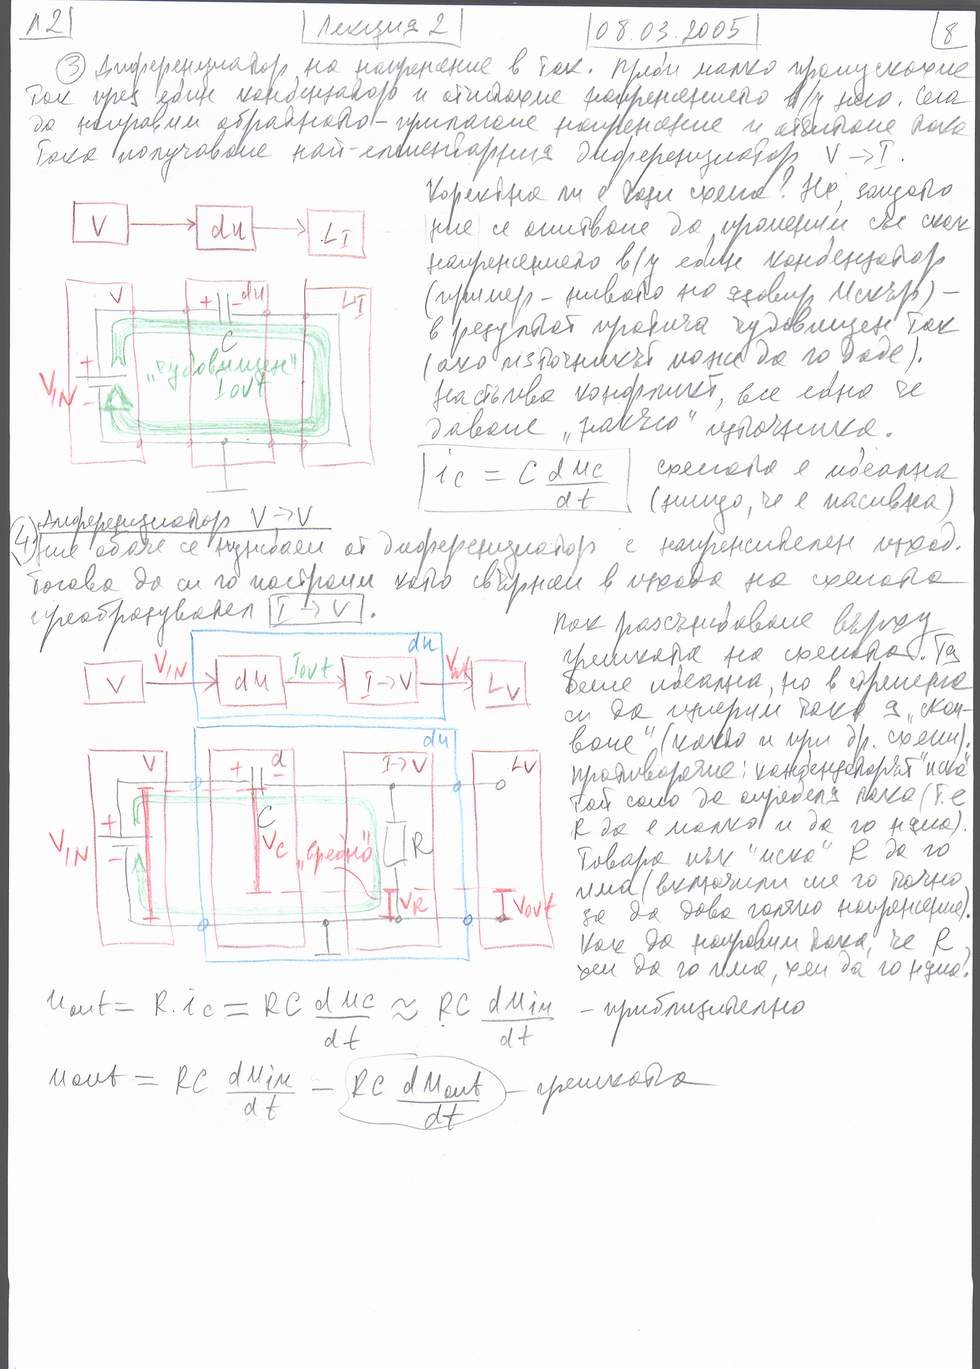 Л2
Лекция 2
08.03.2005
8
③ Диференциатор на напрежение в ток. Преди малко пропускахме
ток през един кондензатор и отчитахме напрежението в/у него. Сега
да направим обратното - прилагаме напрежение и отчитаме тока
Така получаваме най-елементарния диференциатор V → I.
V
du
LI
Коректна ли е тази схема? Не, защото
ние се опитваме да променим със скок
напрежението в/у един кондензатор
(пример - нивото на язовир Искър) -
в резултат протича чудовищен ток
(ако източникът може да го даде).
Настъпва конфликт, все едно че
даваме „накъсо" източника.
V
+ du -
LI
C
VIN
+
-
„чудовищен"
IOUT
ic = C duc/dt
схемата е идеална
(нищо, че е пасивна)
4. Диференциатор V → V
Ние обаче се нуждаем от диференциатор с напрежителен изход.
Тогава да си го построим като свържем в изхода на схемата
преобразувател I → V.
Пак разсъждаваме върху
грешката на схемата. Тя
беше идеална, но в стремежа
си да измерим тока я
(както и при др. схеми).
Противоречие: кондензаторът "иска"
той само да определя тока (т.е
R да е малко и да го няма).
Товара пък "иска" R да го
има (включили сме го точно
за да дава голямо напрежение).
Как да направим така, че R
хем да го има, хем да го няма?
V
VIN
du
IOUT
I → V
Vout
LV
du
du
V
+ d -
C
I → V
LV
VIN
+
-
VC
„вредно"
R
VR
VOUT
uout = R.ic = RC duc/dt ≈ RC duin/dt - приблизително
uout = RC duin/dt - RC duout/dt - грешката